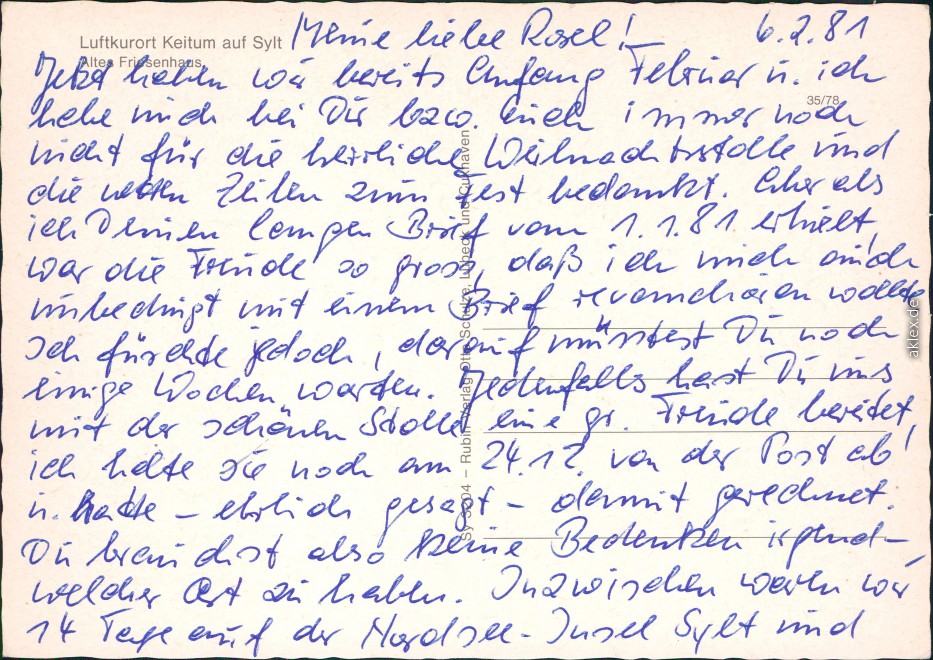 Luftkurort Keitum auf Sylt
Altes Friesenhaus
35/78
Meine liebe Rosel! 6.2.81
Jetzt haben wir bereits Anfang Februar u. ich
habe mich bei Dir bzw. Euch immer noch
nicht für die herrliche Weihnachtsstolle und
die netten Zeilen zum Fest bedankt. Aber als
ich Deinen langen Brief vom 1.1.81 erhielt,
war die Freude so gross, daß ich mich auch
unbedingt mit einem Brief revanchieren wollte
Ich fürchte jedoch, darauf müsstest Du noch
einige Wochen warten. Jedenfalls hast Du uns
mit der schönen Stolle eine gr. Freude bereitet,
ich holte sie noch am 24.12. von der Post ab!
u. hatte – ehrlich gesagt – damit gerechnet.
Du brauchst also keine Bedenken irgend-
welcher Art zu haben. Inzwischen waren wir
14 Tage auf der Nordsee-Insel Sylt und
Sy 3204 – Rubin-Verlag Otto Schulze, Lübeck und Cuxhaven
aklex.de